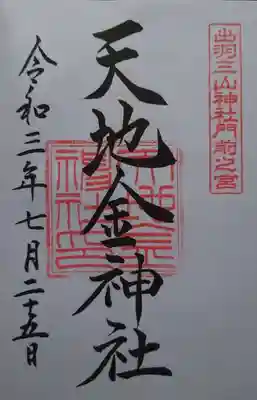 出羽三山神社門前之宮
天地金神社
令和三年七月二十五日